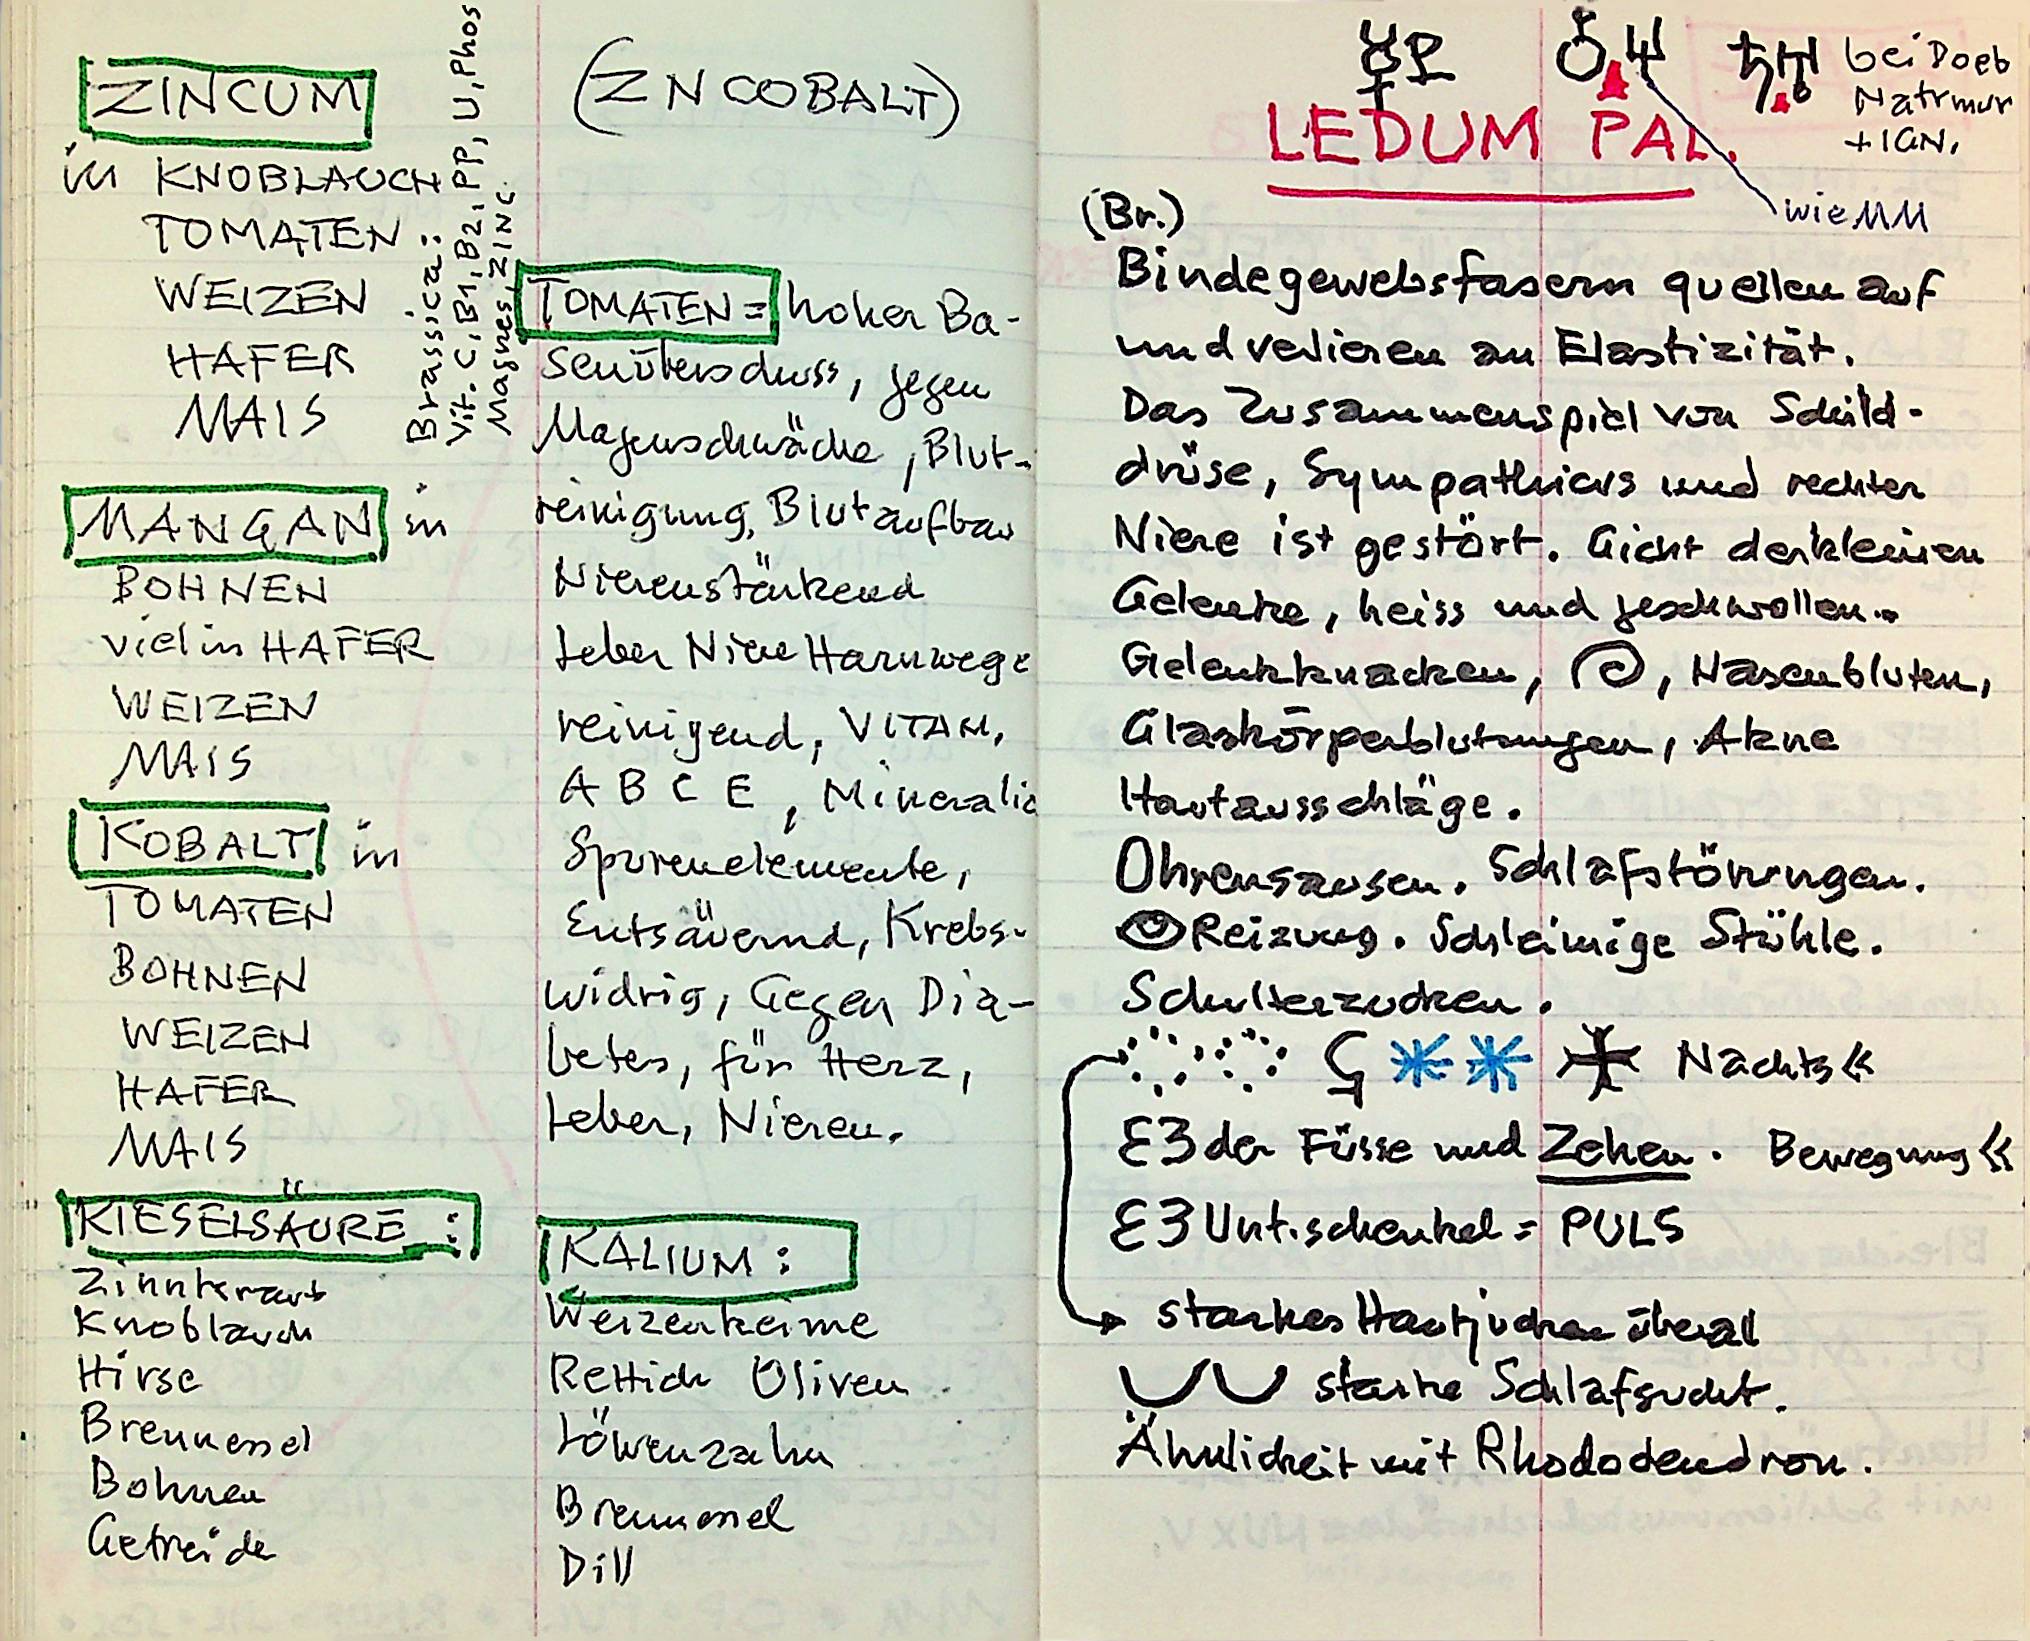 ZINCUM
in KNOBLAUCH
TOMATEN
WEIZEN
HAFER
MAIS
Brassica:
Vit. C, B1, B2, PP, U, Phos
Magnes, ZINC
MANGAN in
BOHNEN
viel in HAFER
WEIZEN
MAIS
KOBALT in
TOMATEN
BOHNEN
WEIZEN
HAFER
MAIS
KIESELSÄURE:
Zinnkraut
Knoblauch
Hirse
Brennessel
Bohnen
Getreide
(ZN COBALT)
TOMATEN = hoher Ba-
senüberschuss, gegen
Magenschwäche, Blut-
reinigung, Blutaufbau
Nierenstärkend
Leber Niere Harnwege
reinigend, VITAM,
A B C E, Mineralie
Spurenelemente,
Entsäuernd, Krebs-
widrig, Gegen Dia-
betes, für Herz,
Leber, Nieren.
KALIUM:
Weizenkeime
Rettich Oliven
Löwenzahn
Brennessel
Dill
bei Doeb
Natrmur
+ IGN.
LEDUM PAL.
wie MM
(Br.)
Bindegewebsfasern quellen auf
und verlieren an Elastizität.
Das Zusammenspiel von Schild-
drüse, Sympathicus und rechter
Niere ist gestört. Gicht der kleinen
Gelenke, heiss und geschwollen.
Gelenkknacken, , Nasenbluten,
Glaskörperblutungen, Akne
Hautausschläge.
Ohrensausen. Schlafstörungen.
Reizung. Schleimige Stühle.
Schulterzucken.
Nachts <<
der Füsse und Zehen. Bewegung <<
Unt.schenkel = PULS
starkes Hautjucken überal
starke Schlafsucht.
Ähnlichkeit mit Rhododendron.